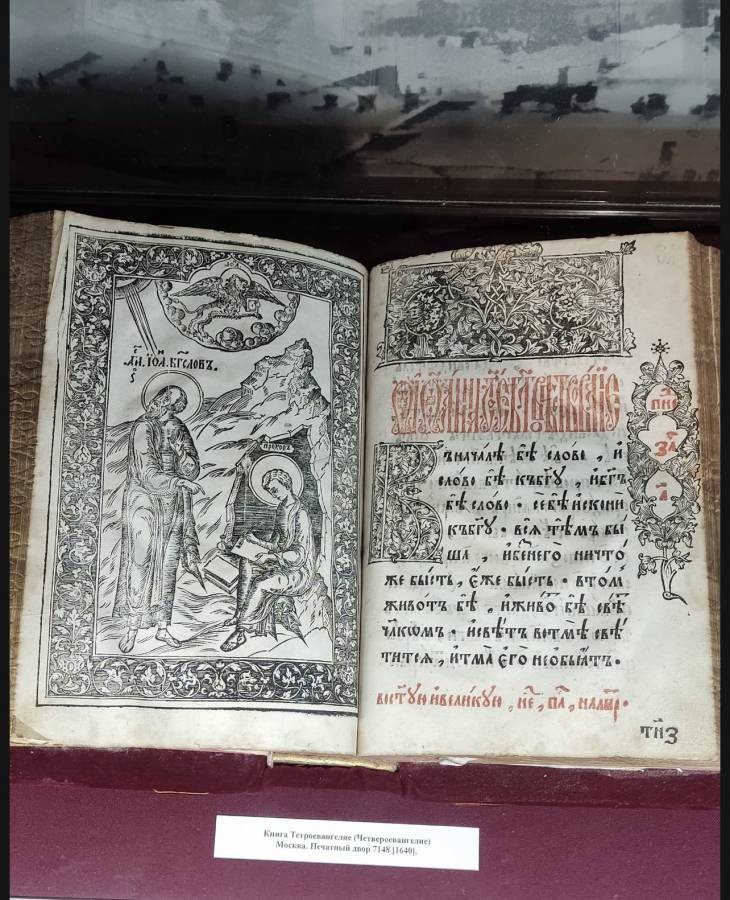 А҆́гі. І҆ѡ҃А. БГ҃СЛОВЪ.
прохоръ
Въначалѣ бѣ̀ сло́во , и҆
сло́во бѣ̀ къбг҃ꙋ и҆бг҃ъ
бѣ̀ сло́во . се́ бѣ̀ и҆сконѝ
къбг҃ꙋ . всѧ̑ тѣ́мъ бы́
ша , и҆безнего̀ ничто́
же бы́сть , є҆́же бы́сть . вто́мъ
живо́тъ бѣ̀ , и҆живо́тъ бѣ̀ свѣ́тъ
чл҃кѡмъ . и҆свѣ́тъ вотмѣ̀ свѣ́
тится , и҆тма̀ є҆гѡ̀ необъѧ́тъ .
вост҃ꙋю и҆вели́кꙋю , не҃ , па҃ , налит҃ꙋр .
за҃
а҃
тн҃з
Книга Тетроевангелие (Четвероевангелие)
Москва. Печатный двор 7148 [1640].